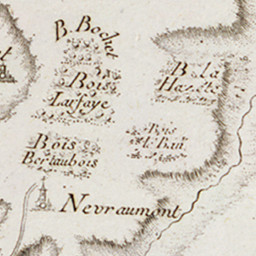 B. Bochet
Bois
Larfaye
B. la
Bois
Bois
Bertaubois
Nevraumont